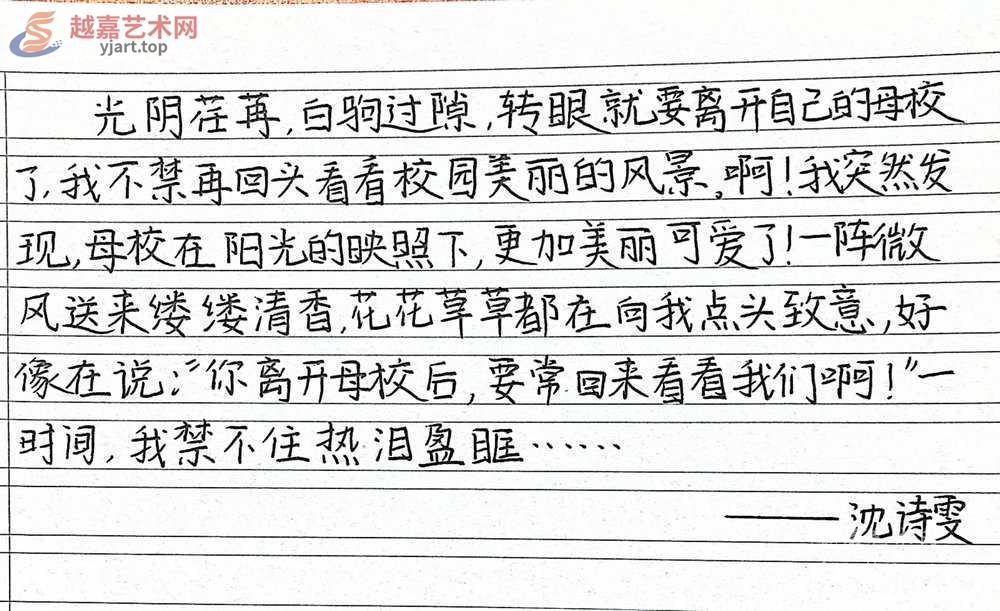 越嘉艺术网
yjart.top
光阴荏苒,白驹过隙,转眼就要离开自己的母校
了,我不禁再回头看看校园美丽的风景,啊!我突然发
现,母校在阳光的映照下,更加美丽可爱了!一阵微
风送来缕缕清香,花花草草都在向我点头致意,好
像在说:“你离开母校后,要常回来看看我们啊!”一
时间,我禁不住热泪盈眶……
——沈诗雯